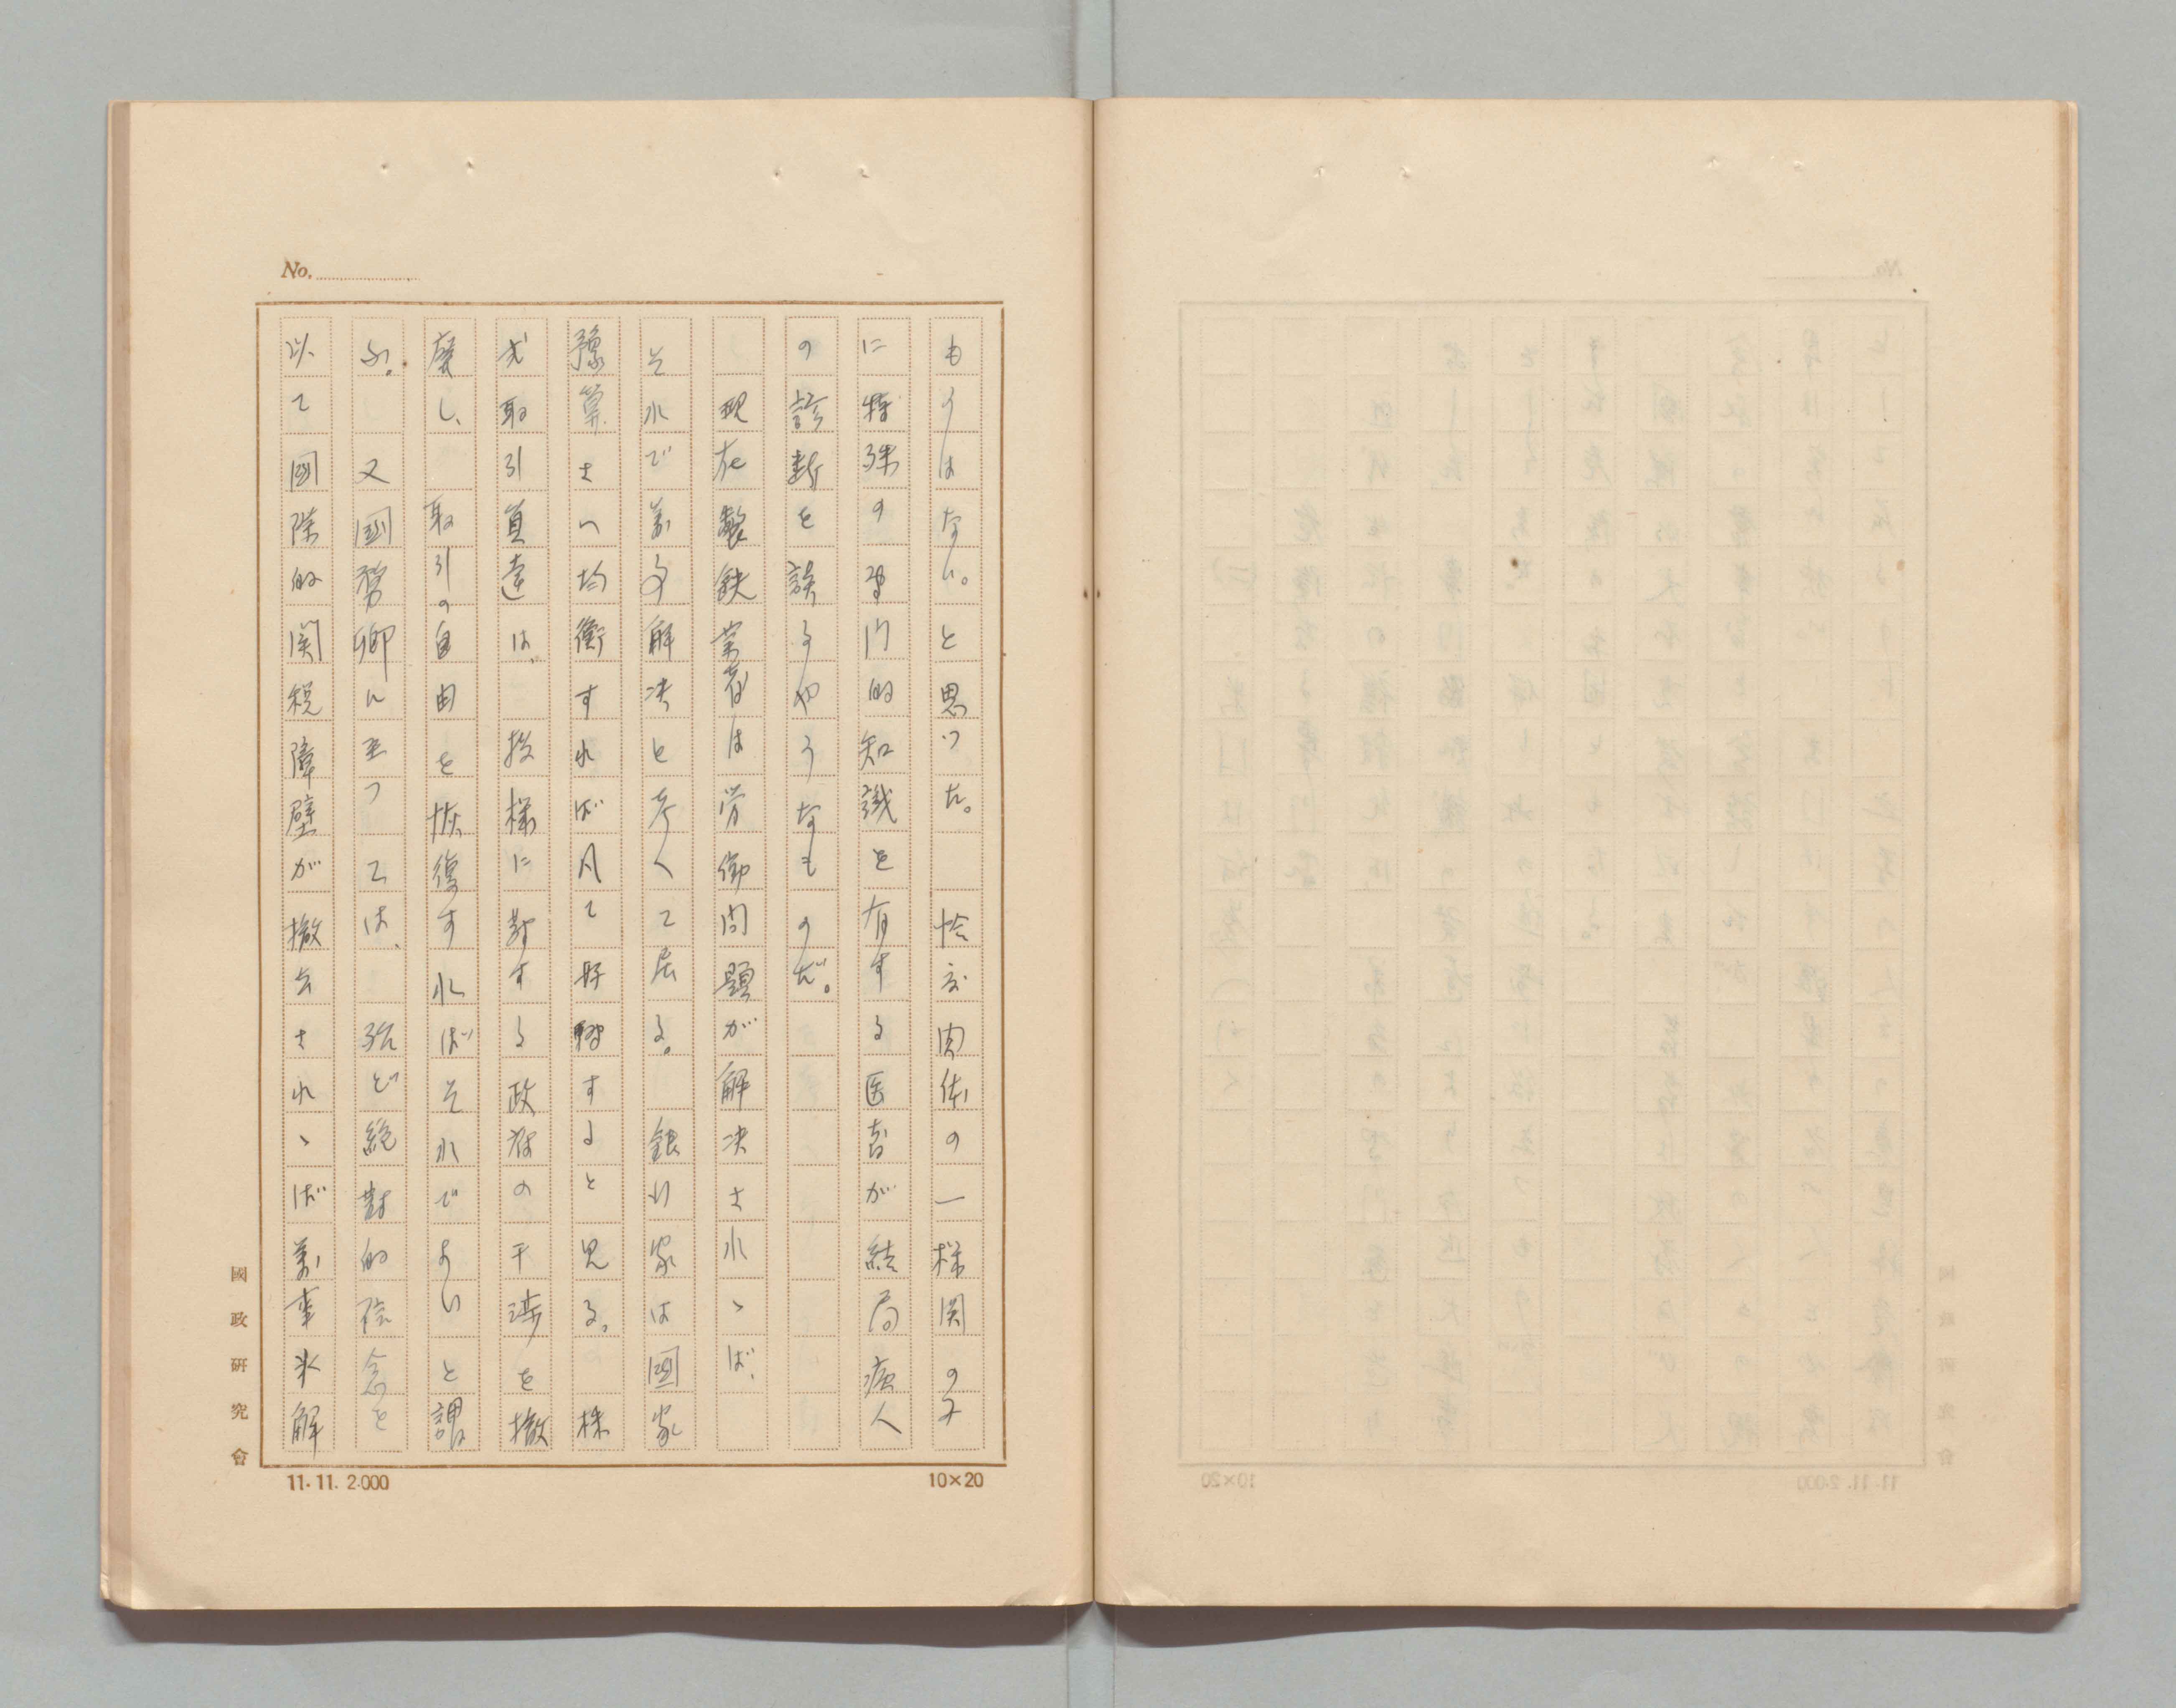 No.
もうはないと思つた。恰度肉体の一機関のみ
に特殊の専門的知識を有する医者が結局病人
の診断を誤るやうなものだ。
現在製鉄業者は労働問題が解決されゝば、
それで万事解決と考へて居る。銀行家は國家
豫算さへ均衡すれば凡て好轉すると見る。株
式取引員達は、投機に対する政府の干渉を撤
廃し、取引の自由を恢復すればそれでよいと謂
ふ。又國務卿に至つては、殆ど絶対的信念を
以て國際的関税障壁が撤去されゝば万事氷解
國政研究會
11.11. 2.000
10×20